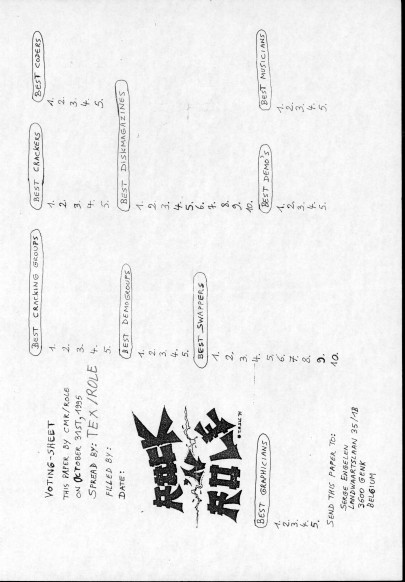 VOTING-SHEET
THIS PAPER BY CMR/ROLE
ON OCTOBER 31ST, 1995
SPREAD BY: TEX/ROLE
FILLED BY:
DATE:
ROCK
'N
ROLE
BEST GRAPHICIANS
1.
2.
3.
4.
5.
SEND THIS PAPER TO:
SERGE ENGELEN
LANDWAARTSLAAN 35/18
3600 GENK
BELGIUM
BEST CRACKING GROUPS
1.
2.
3.
4.
5.
BEST DEMOGROUPS
1.
2.
3.
4.
5.
BEST SWAPPERS
1.
2.
3.
4.
5.
6.
7.
8.
9.
10.
BEST CRACKERS
1.
2.
3.
4.
5.
BEST CODERS
1.
2.
3.
4.
5.
BEST DISKMAGAZINES
1.
2.
3.
4.
5.
6.
7.
8.
9.
10.
BEST DEMO'S
1.
2.
3.
4.
5.
BEST MUSICIANS
1.
2.
3.
4.
5.